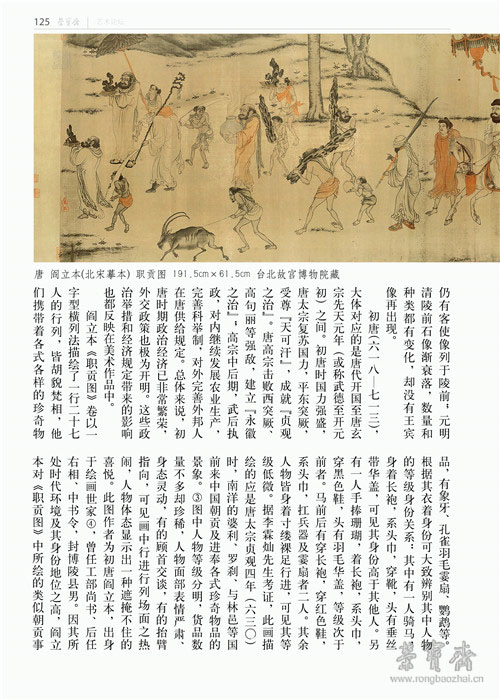 125 荣宝斋
唐 阎立本(北宋摹本) 职贡图 191.5cm×61.5cm 台北故宫博物院藏
仍有客使像列于陵前；元明
清陵前石像渐衰落，数量和
种类都有变化，却没有王宾
像再出现。
初唐（六一八—七一三），
大体对应的是唐代开国至唐玄
宗先天元年（或称武德至开元
初）之间。初唐时国力强盛，
唐太宗复苏国力，平东突厥，
受尊『天可汗』，成就『贞观
之治』。唐高宗击败西突厥、
高句丽等强敌，建立『永徽
之治』；高宗中后期，武后执
政，对内继续发展农业生产，
完善科举制，对外完善外邦人
在唐供给规定。总体来说，初
唐时期政治经济已非常繁荣，
外交政策也极为开明。这些政
治举措和经济规定带来的影响
也都反映在美术作品中。
阎立本《职贡图》卷以一
字型横列法描绘了一行二十七
人的行列，皆胡貌梵相，他
们携带着各式各样的珍奇物
品，有象牙、孔雀羽毛蓑扇、鹦鹉等，
根据其衣着身份可大致辨别其中人物
的等级身份关系：其中有一人骑马，
身着长袍，系头巾，穿靴，头有垂丝
带华盖，可见其身份高于其他人。另
有一人手捧珊瑚，着长袍，系头巾，
穿黑色鞋，头有羽毛华盖，等级次于
前者。马前后有穿长袍，穿红色鞋，
系头巾，扛兵器及蓑扇者二人。其余
人物皆身着寸缕裸足行进，可见其等
级低微。据李霖灿先生考证，此画描
绘的应是唐太宗贞观四年（六三〇）
时，南洋的婆利、罗刹，与林邑等国
前来中国朝贡及进奉各式珍奇物品的
景象。③图中人物等级分明，货品数
量不多却珍稀，人物面部表情严肃、
身态灵动，有的顾首交谈、有的抬臂
指向，可见画中行进行列场面之热
闹，人物体态显示出一种遮掩不住的
喜悦。此图作者为初唐阎立本，出身
于绘画世家④，曾任工部尚书、后任
右相、中书令，封博陵县男。因其所
处时代环境及其身份地位之高，阎立
本对《职贡图》中所绘的类似朝贡事
荣宝斋
www.rongbaozhai.cn